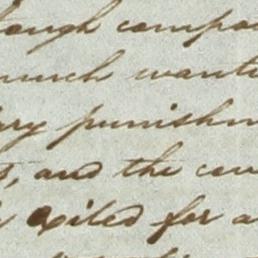 ough compa
much wante
ary punishm
s, and the cou
exiled for a